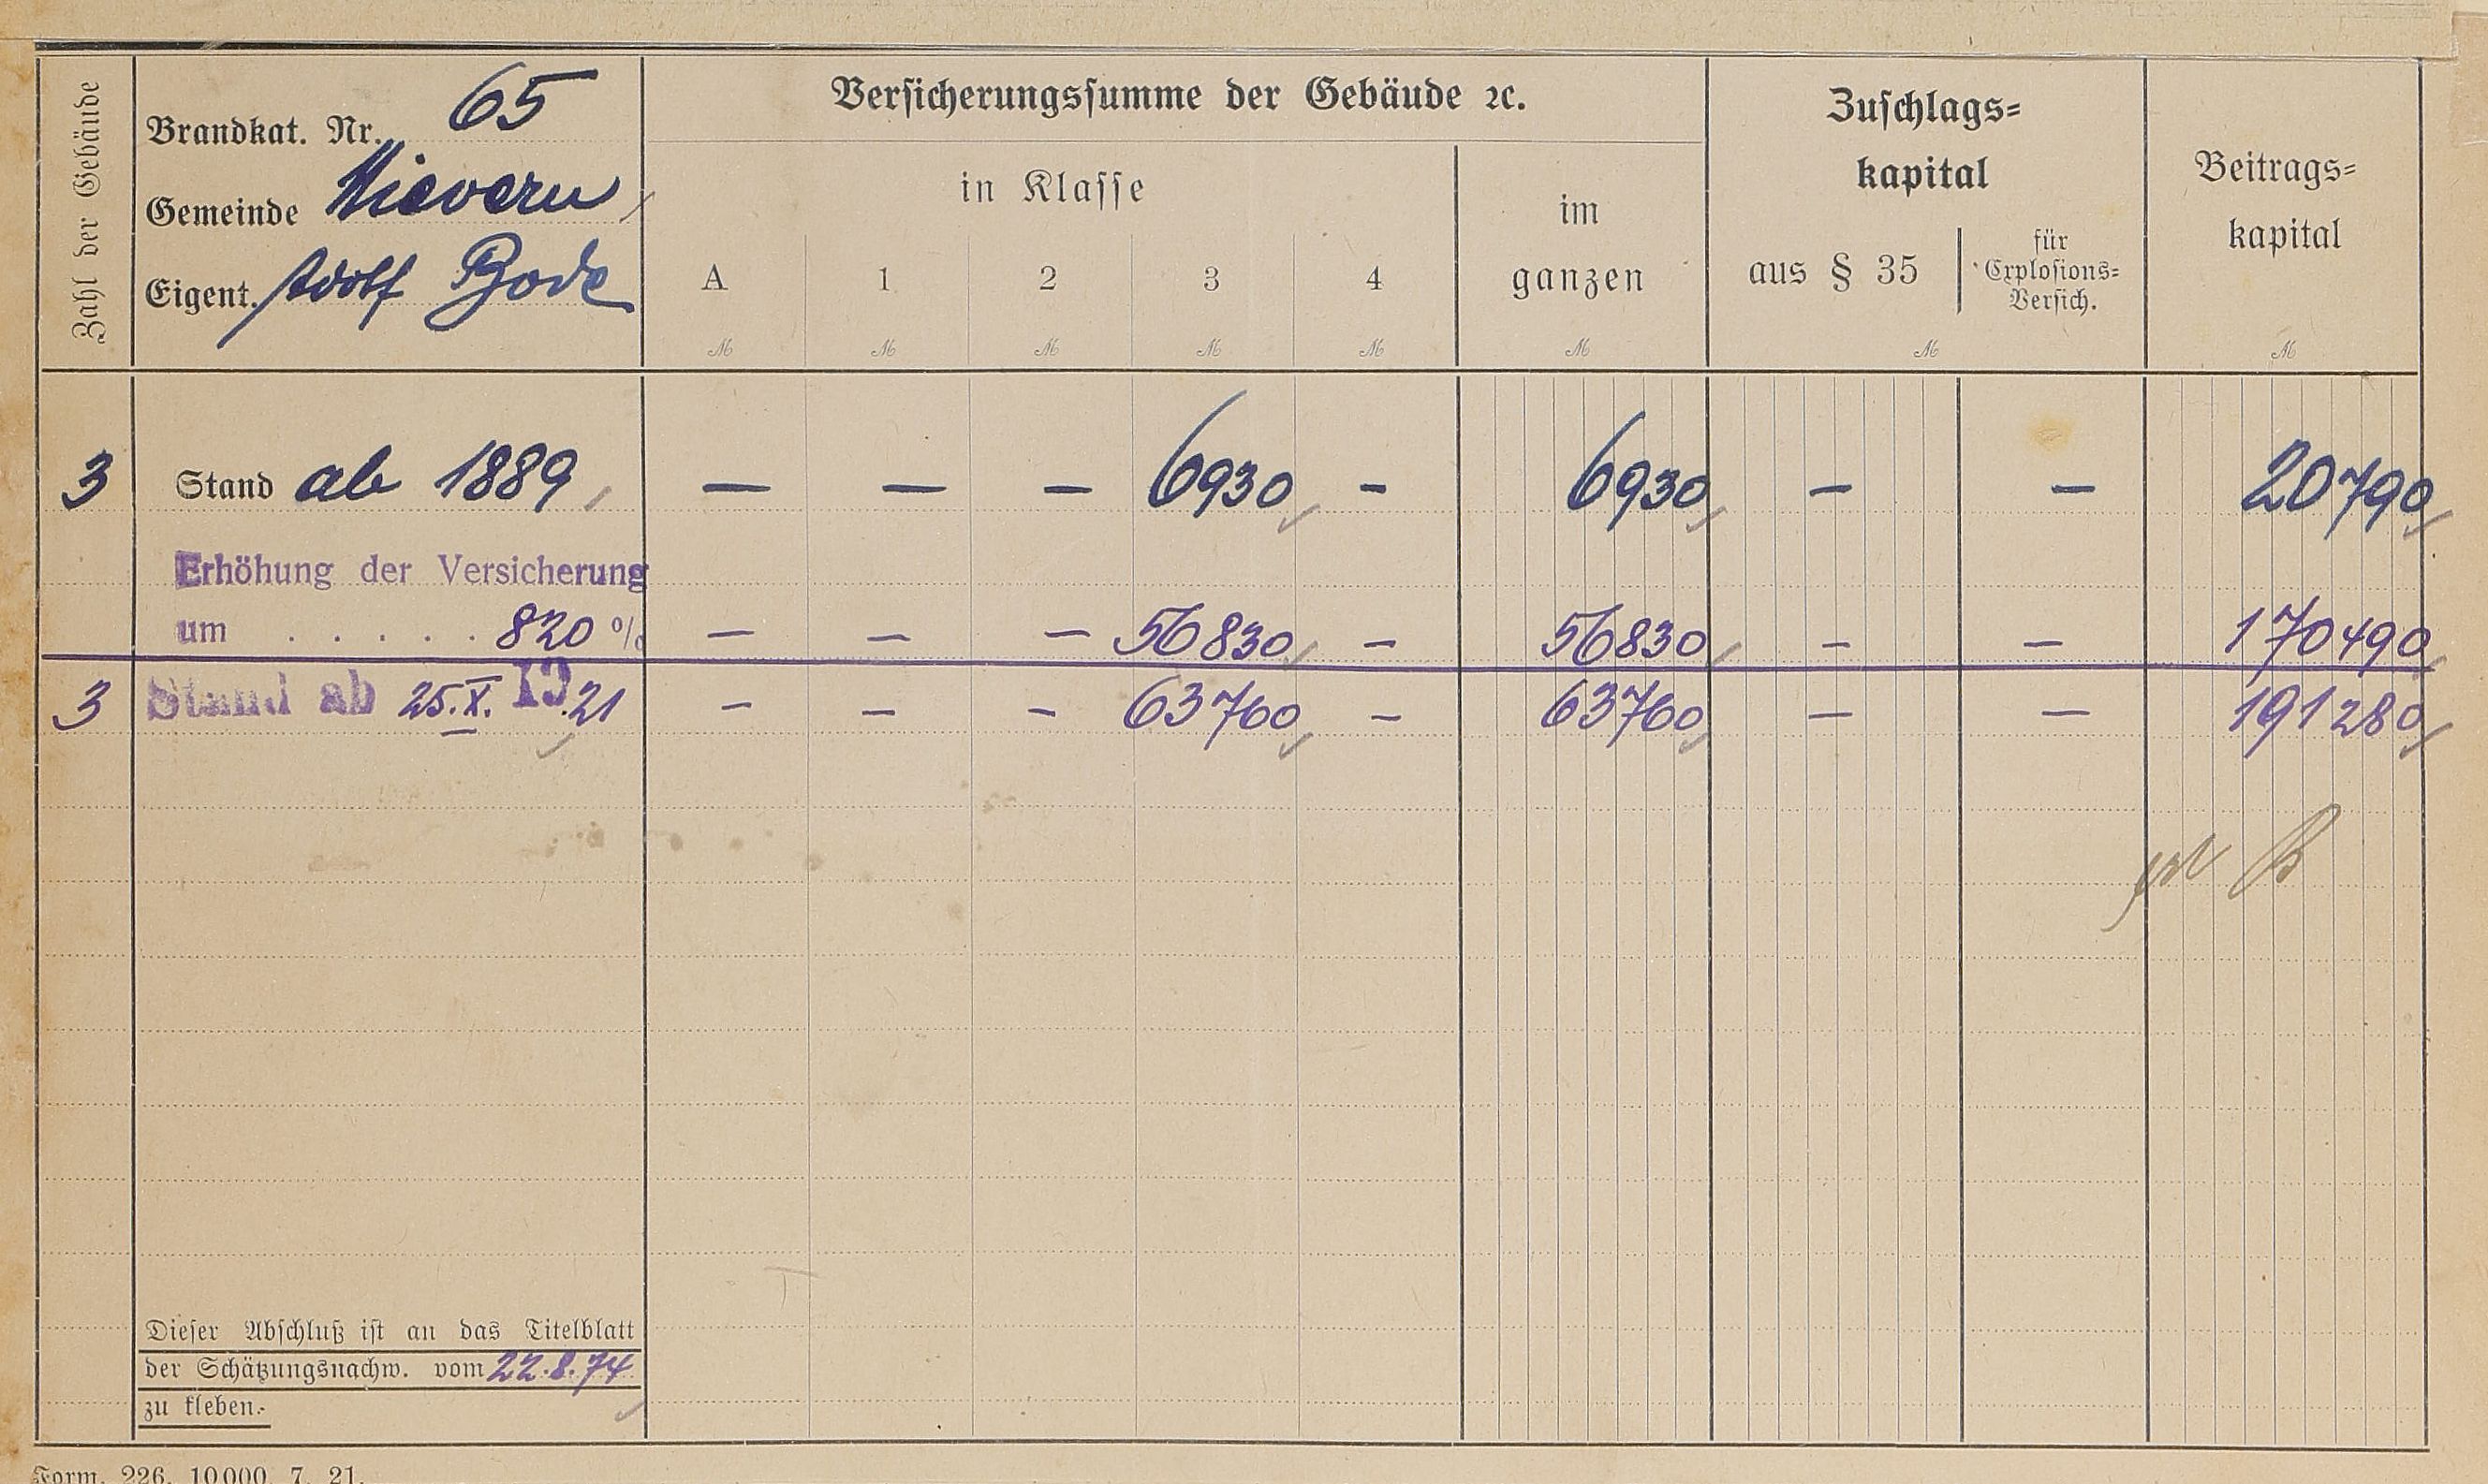 Zahl der Gebäude
Brandkat. Nr. 65
Gemeinde Nievern
Eigent. Adolf Bode
Versicherungssumme der Gebäude ꝛc.
in Klasse
A 1 2 3 4
ℳ ℳ ℳ ℳ ℳ
im
ganzen
ℳ
Zuschlags-
kapital
aus § 35
für
Explosions-
Versich.
ℳ
Beitrags-
kapital
ℳ
3 Stand ab 1889 — — — 6930 — 6930 — — 20790
Erhöhung der Versicherung
um . . . . . 820 % — — — 56830 — 56830 — — 170490
3 Stand ab 25.X. 19.21 — — — 63760 — 63760 — — 191280
Dieser Abschluß ist an das Titelblatt
der Schätzungsnachw. vom 22.8.74
zu kleben.
Form. 226. 10000. 7. 21.